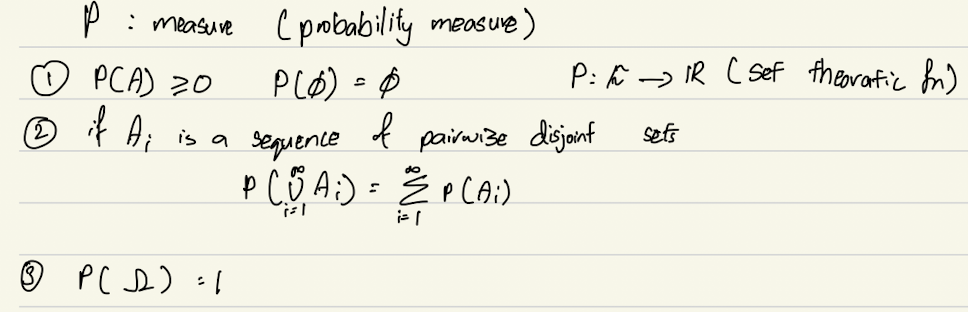 P : measure (probability measure)
① P(A) ≥ 0 P(∅) = ∅ P: → ℝ (set theoratic fn)
② if Aᵢ is a sequence of pairwize disjoint sets
P(∪_{i=1}^{∞} Aᵢ) = ∑_{i=1}^{∞} P(Aᵢ)
③ P(Ω) = 1